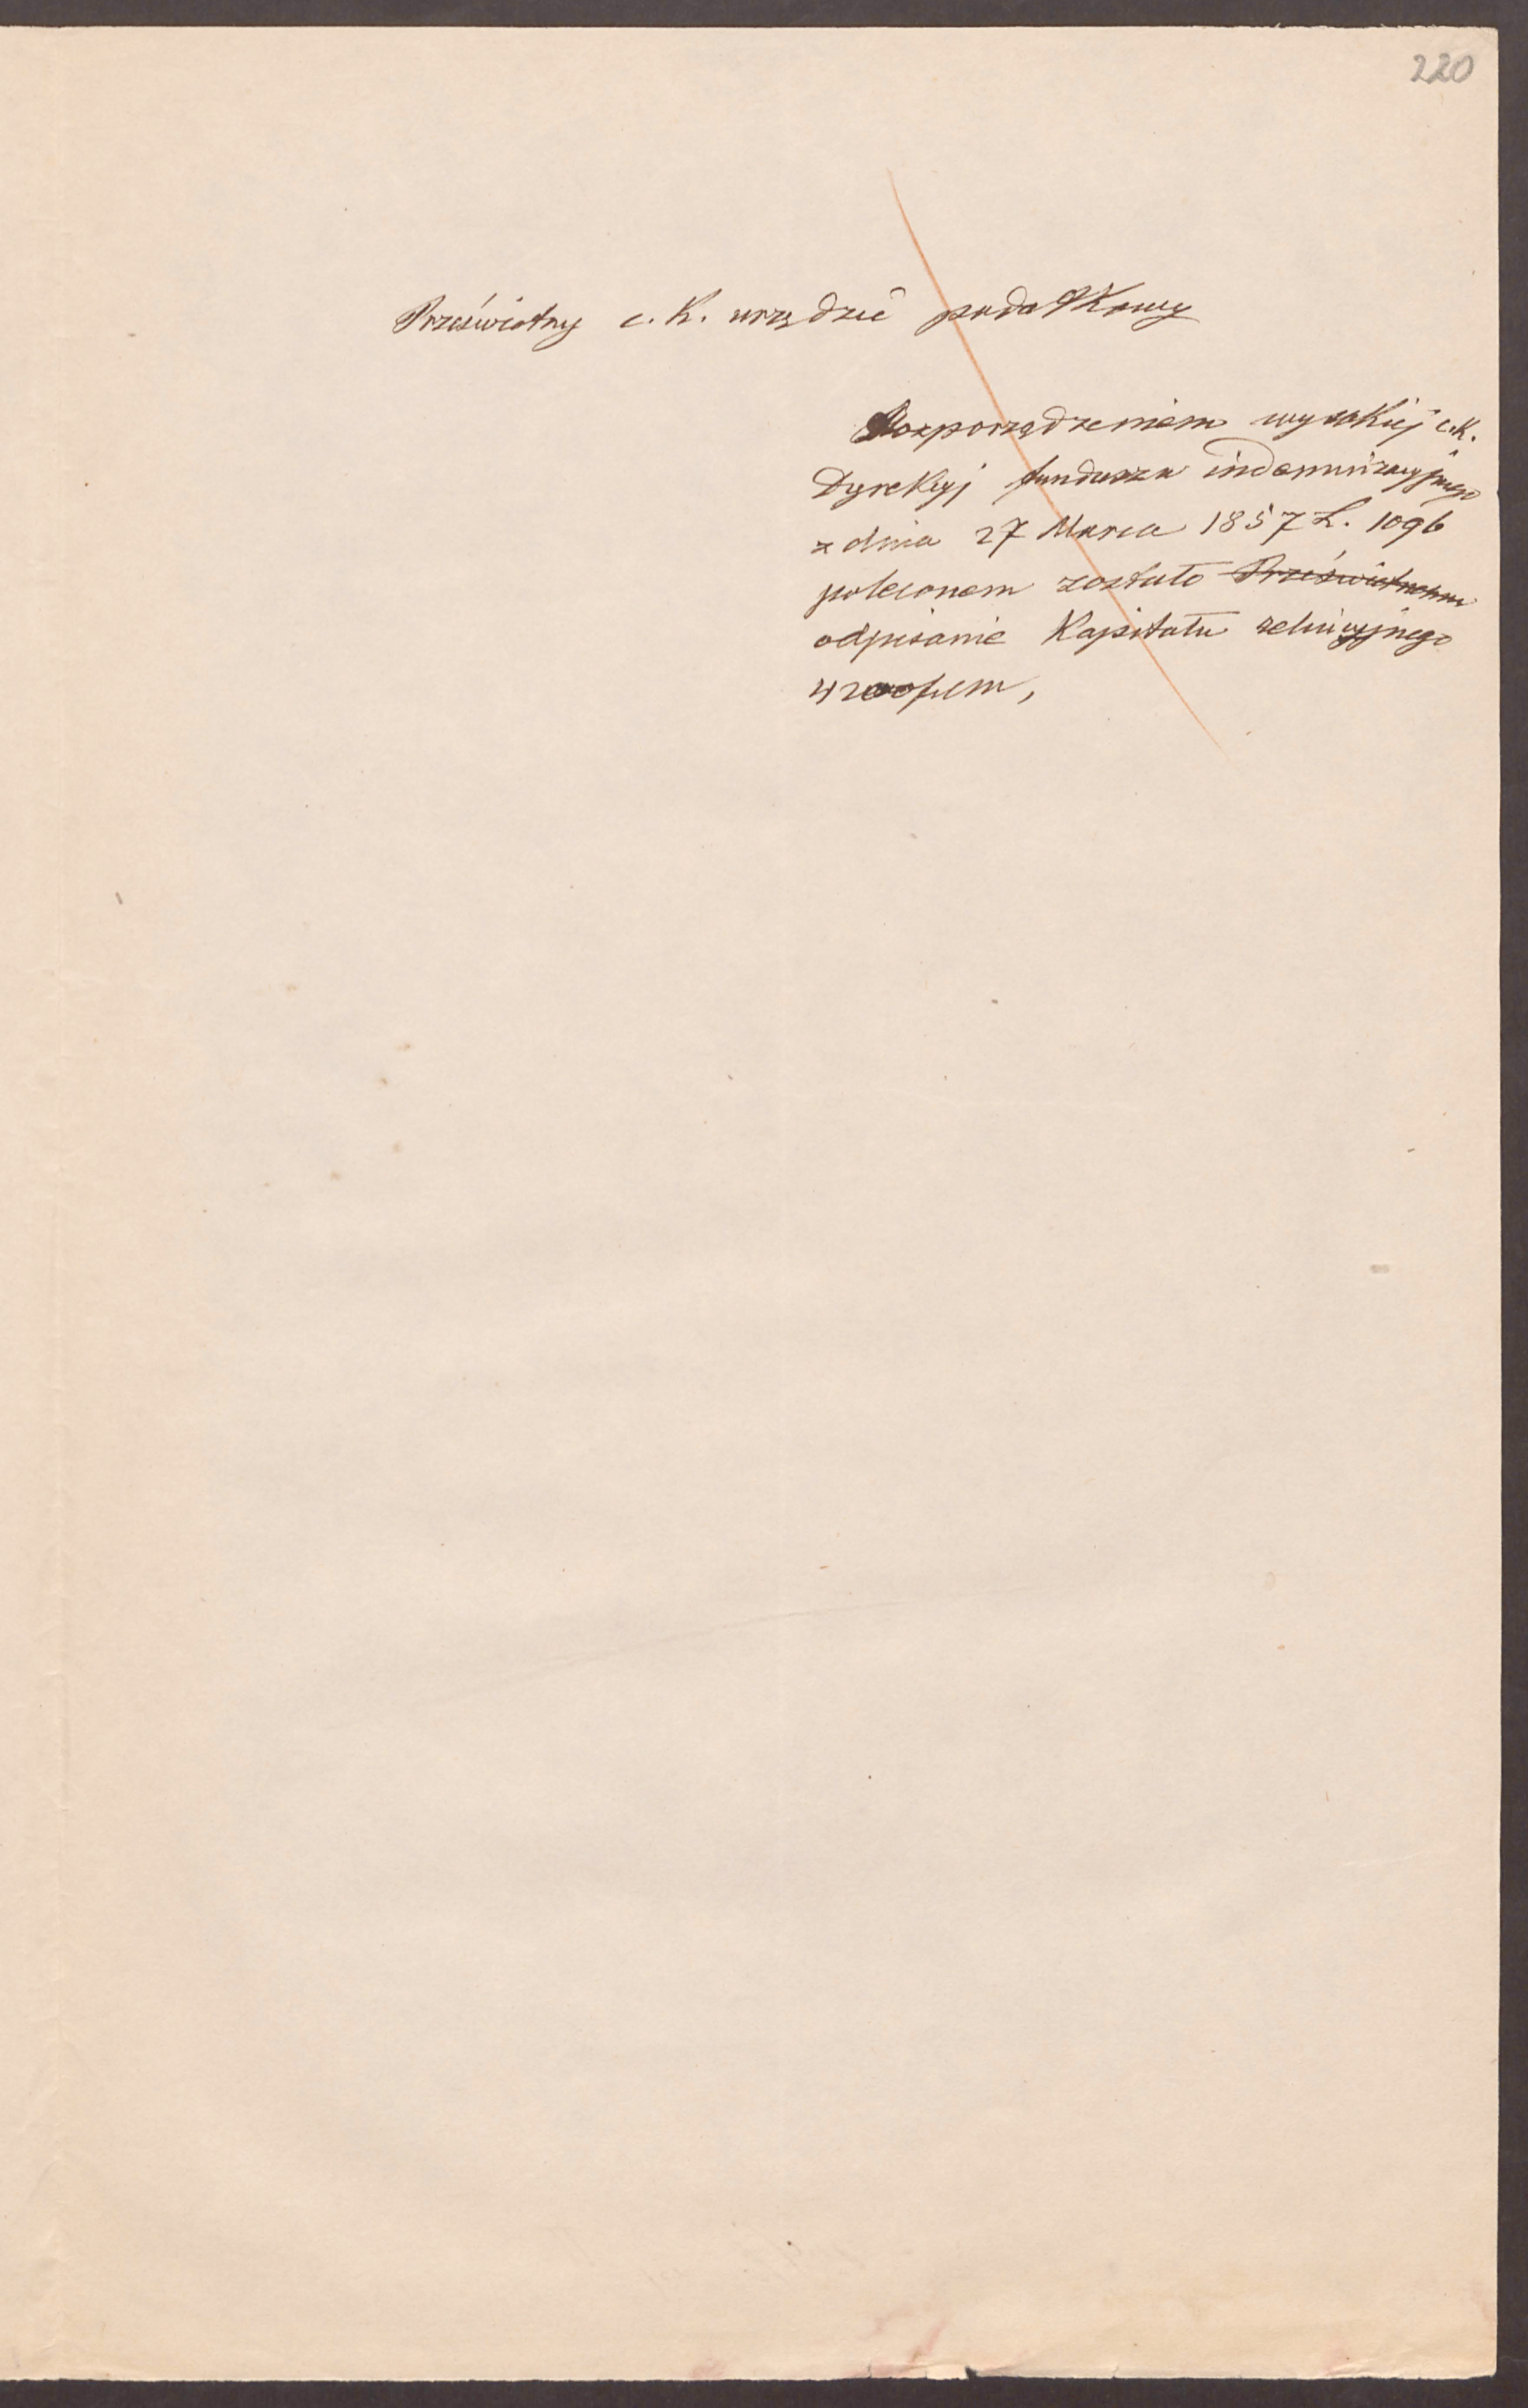 220
Prześwietny c. K. urzędzie podatkowy
Rozporządzeniem wysokiej c.K.
Dyrekcyj funduszu indemnizacyjnego
z dnia 27 Marca 1857 L. 1096
poleconem zostało Prześwietnemu
odpisanie Kapitału reluicyjnego